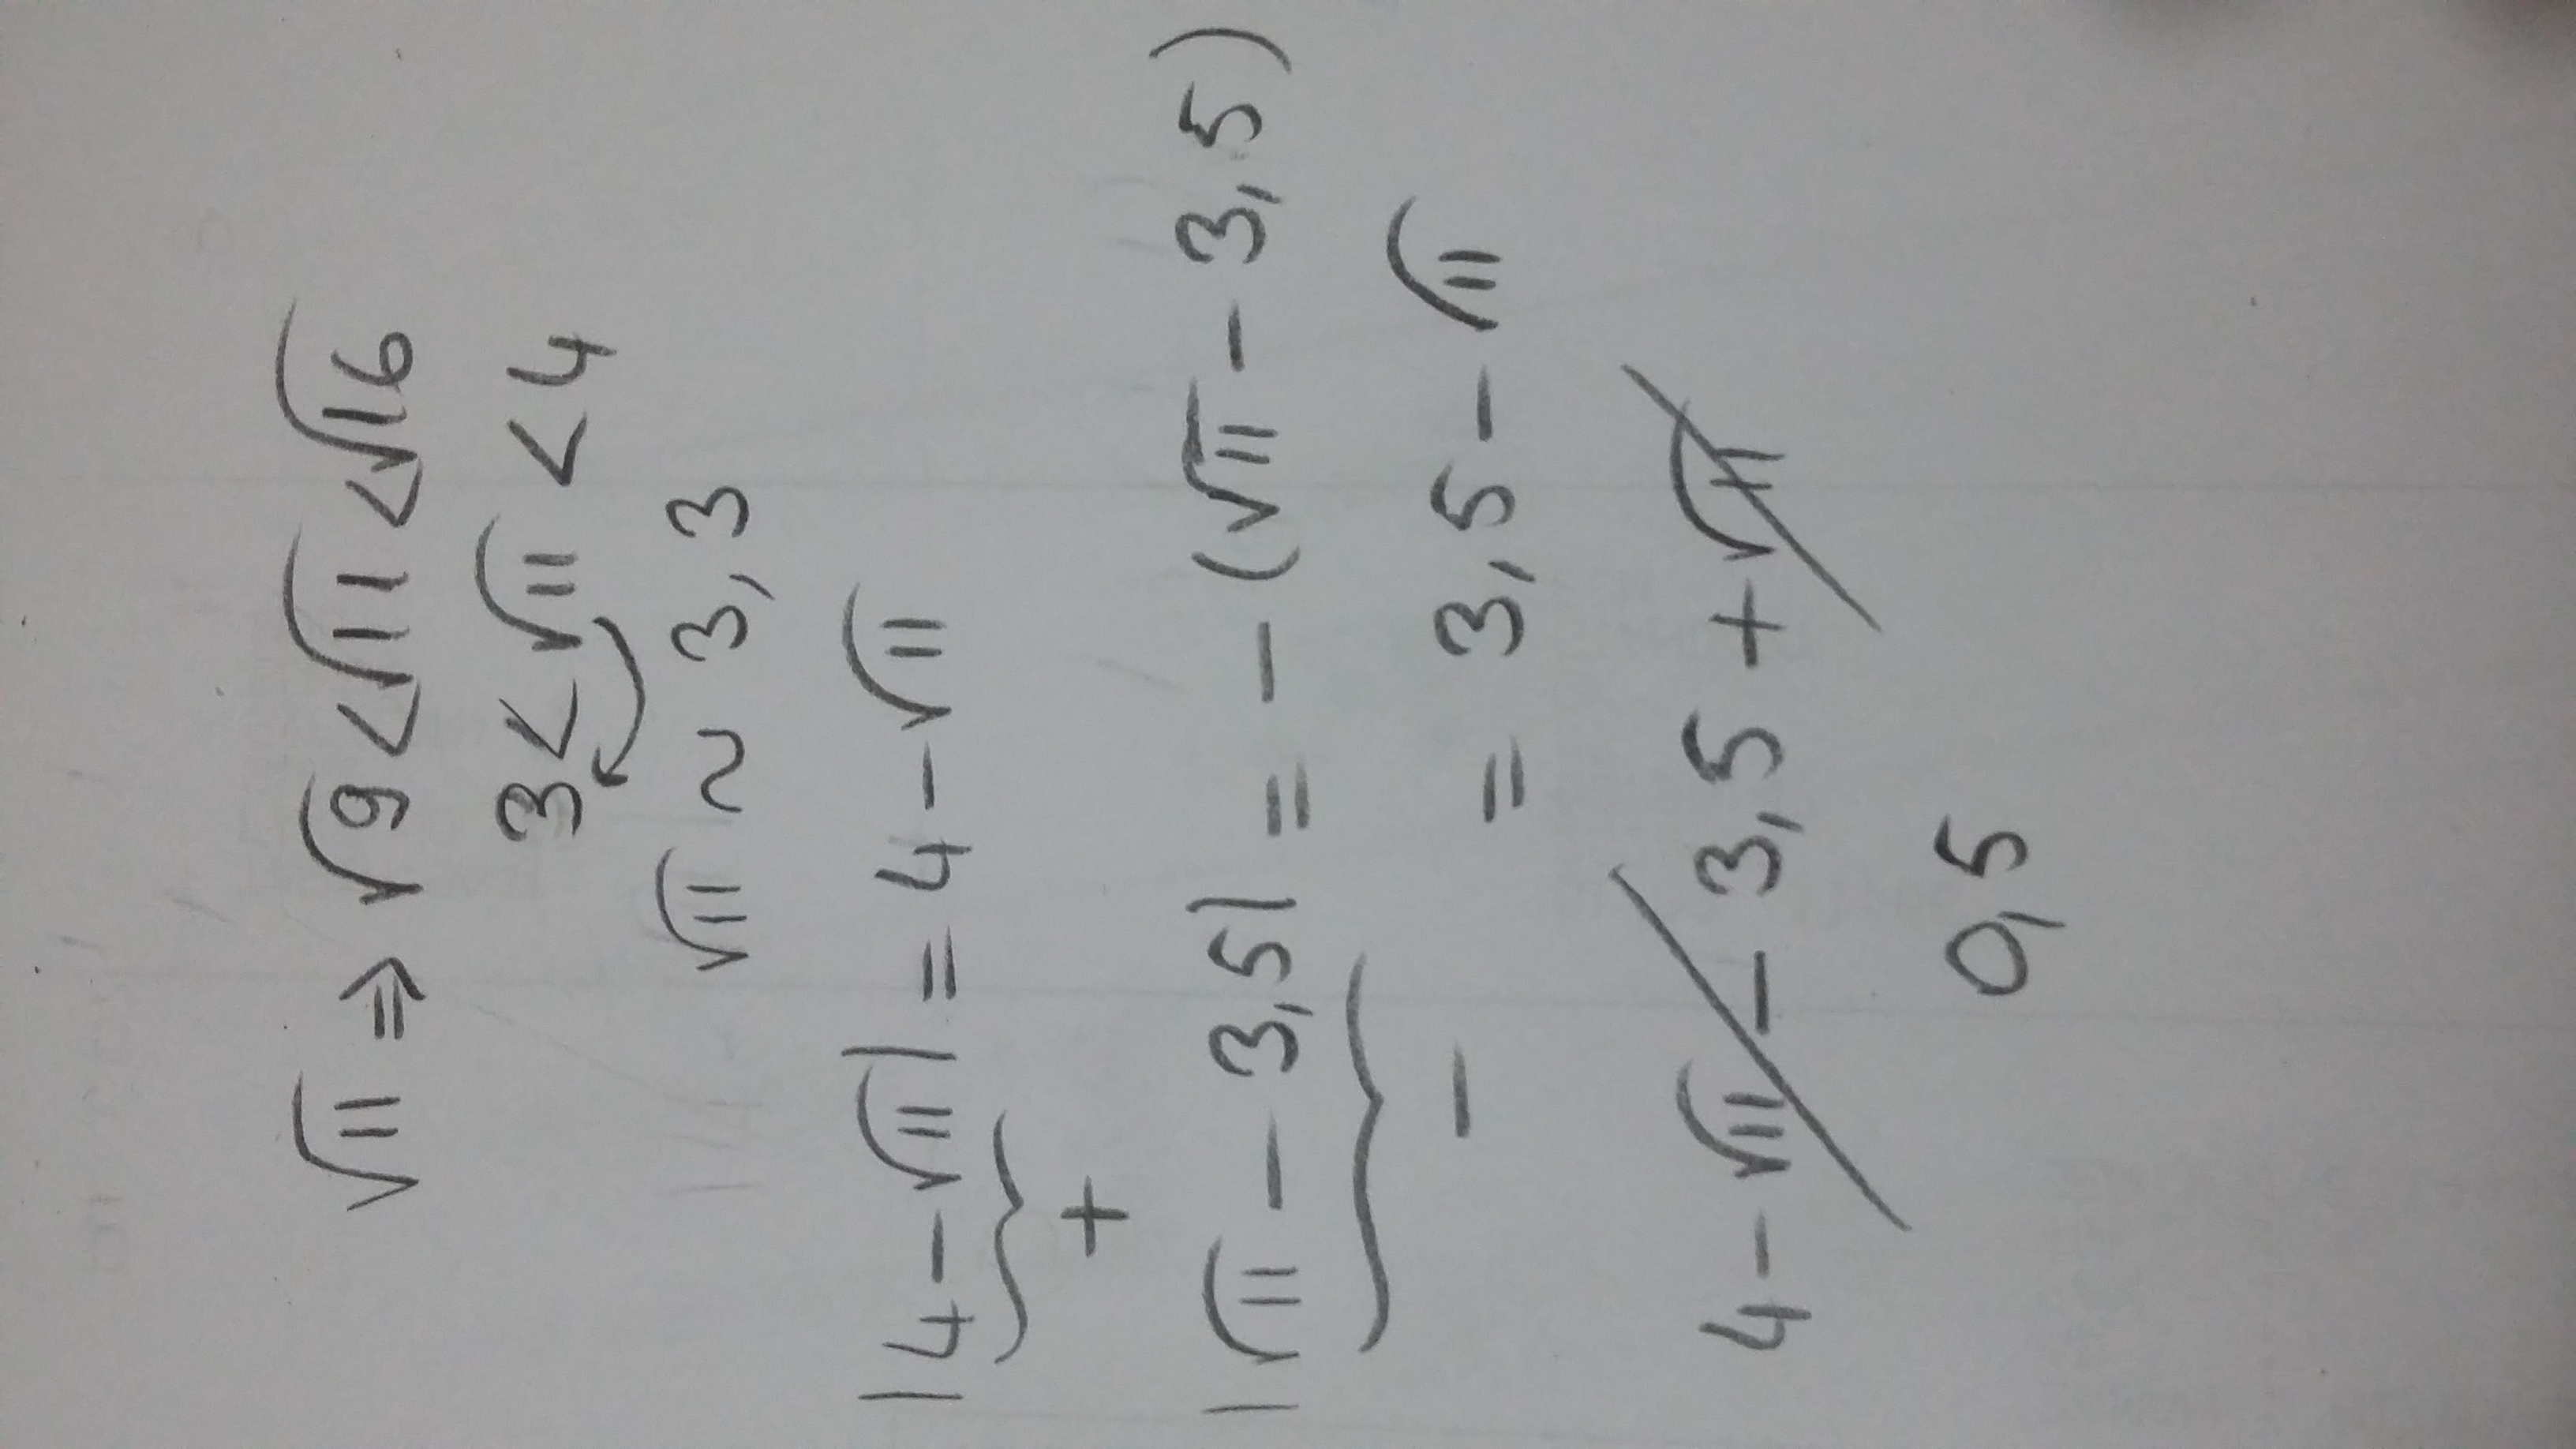 √11 ⇒ √9 < √11 < √16
3 < √11 < 4
√11 ~ 3,3
|4 - √11| = 4 - √11
+
|√11 - 3,5| = - (√11 - 3,5)
- = 3,5 - √11
4 - √11 - 3,5 + √11
0,5